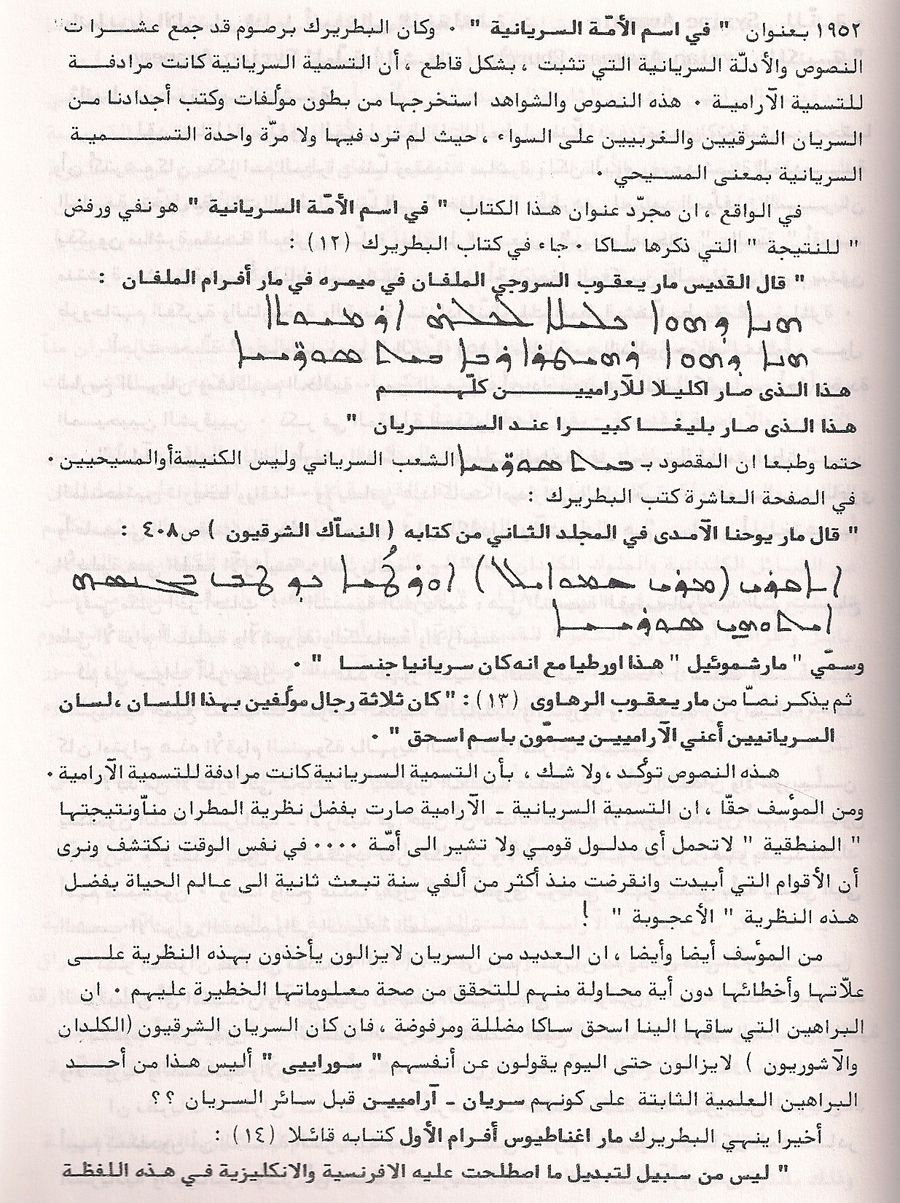 ١٩٥٢ بعنوان " في اسم الأمّة السريانية " ٠ وكان البطريرك برصوم قد جمع عشرات
النصوص والأدلّة السريانية التي تثبت ، بشكل قاطع ، أن التسمية السريانية كانت مرادفة
للتسمية الآرامية ٠ هذه النصوص والشواهد استخرجها من بطون مؤلفات وكتب أجدادنا من
السريان الشرقيين والغربيين على السواء ، حيث لم ترد فيها ولا مرّة واحدة التسمية
السريانية بمعنى المسيحي ٠
في الواقع ، ان مجرّد عنوان هذا الكتاب " في اسم الأمّة السريانية " هو نفي ورفض
" للنتيجة " التي ذكرها ساكا ٠ جاء في كتاب البطريرك (١٢) :
" قال القديس مار يعقوب السروجي الملفان في ميمره في مار أفرام الملفان :
ܗܢܐ ܕܗܘܐ ܟܠܝܠܐ ܠܟܠܗ ܐܪܡܝܘܬܐ
ܗܢܐ ܕܗܘܐ ܪܗܝܛܪܐ ܪܒܐ ܒܝܬ ܣܘܪ̈ܝܝܐ
هذا الذى صار اكليلا للآراميين كلّهم
هذا الذى صار بليغا كبيرا عند السريان "
حتما وطبعا ان المقصود بـ ܒܝܬ ܣܘܪ̈ܝܝܐ الشعب السرياني وليس الكنيسة أو المسيحيين ٠
في الصفحة العاشرة كتب البطريرك :
" قال مار يوحنا الآمدى في المجلد الثاني من كتابه ( النساّك الشرقيون ) ص٤٠٨ :
ܐܘܪܛܝܐ ܟܕ ܛܒ ܒܓܢܣܗ
ܐܝܬܘܗܝ ܣܘܪܝܝܐ
وسمّي " مار شموئيل " هذا اورطيا مع انه كان سريانيا جنسا " ٠
ثم يذكر نصاّ من مار يعقوب الرهاوى (١٣) : " كان ثلاثة رجال مؤلفين بهذا اللسان ، لسان
السريانيين أعني الآراميين يسمّون باسم اسحق " ٠
هذه النصوص توكد ، ولا شك ، بأن التسمية السريانية كانت مرادفة للتسمية الآرامية ٠
ومن المؤسف حقّا ، ان التسمية السريانية ـ الآرامية صارت بفضل نظرية المطران منّا ونتيجتها
" المنطقية " لا تحمل أى مدلول قومي ولا تشير الى أمّة ٠٠٠٠ في نفس الوقت نكتشف ونرى
أن الأقوام التي أبيدت وانقرضت منذ أكثر من ألفي سنة تبعث ثانية الى عالم الحياة بفضل
هذه النظرية " الأعجوبة " !
من المؤسف أيضا وأيضا ، ان العديد من السريان لا يزالون يأخذون بهذه النظرية على
علاّتها وأخطائها دون أية محاولة منهم للتحقق من صحة معلوماتها الخطيرة عليهم ٠ ان
البراهين التي ساقها الينا اسحق ساكا مضللة ومرفوضة ، فان كان السريان الشرقيون (الكلدان
والآشوريون ) لا يزالون حتى اليوم يقولون عن أنفسهم " سورايي " أليس هذا من أحد
البراهين العلمية الثابتة على كونهم سريان ـ آراميين قبل سائر السريان ؟؟
أخيرا ينهي البطريرك مار اغناطيوس أفرام الأول كتابه قائلا (١٤) :
" ليس من سبيل لتبديل ما اصطلحت عليه الافرنسية والانكليزية في هذه اللفظة